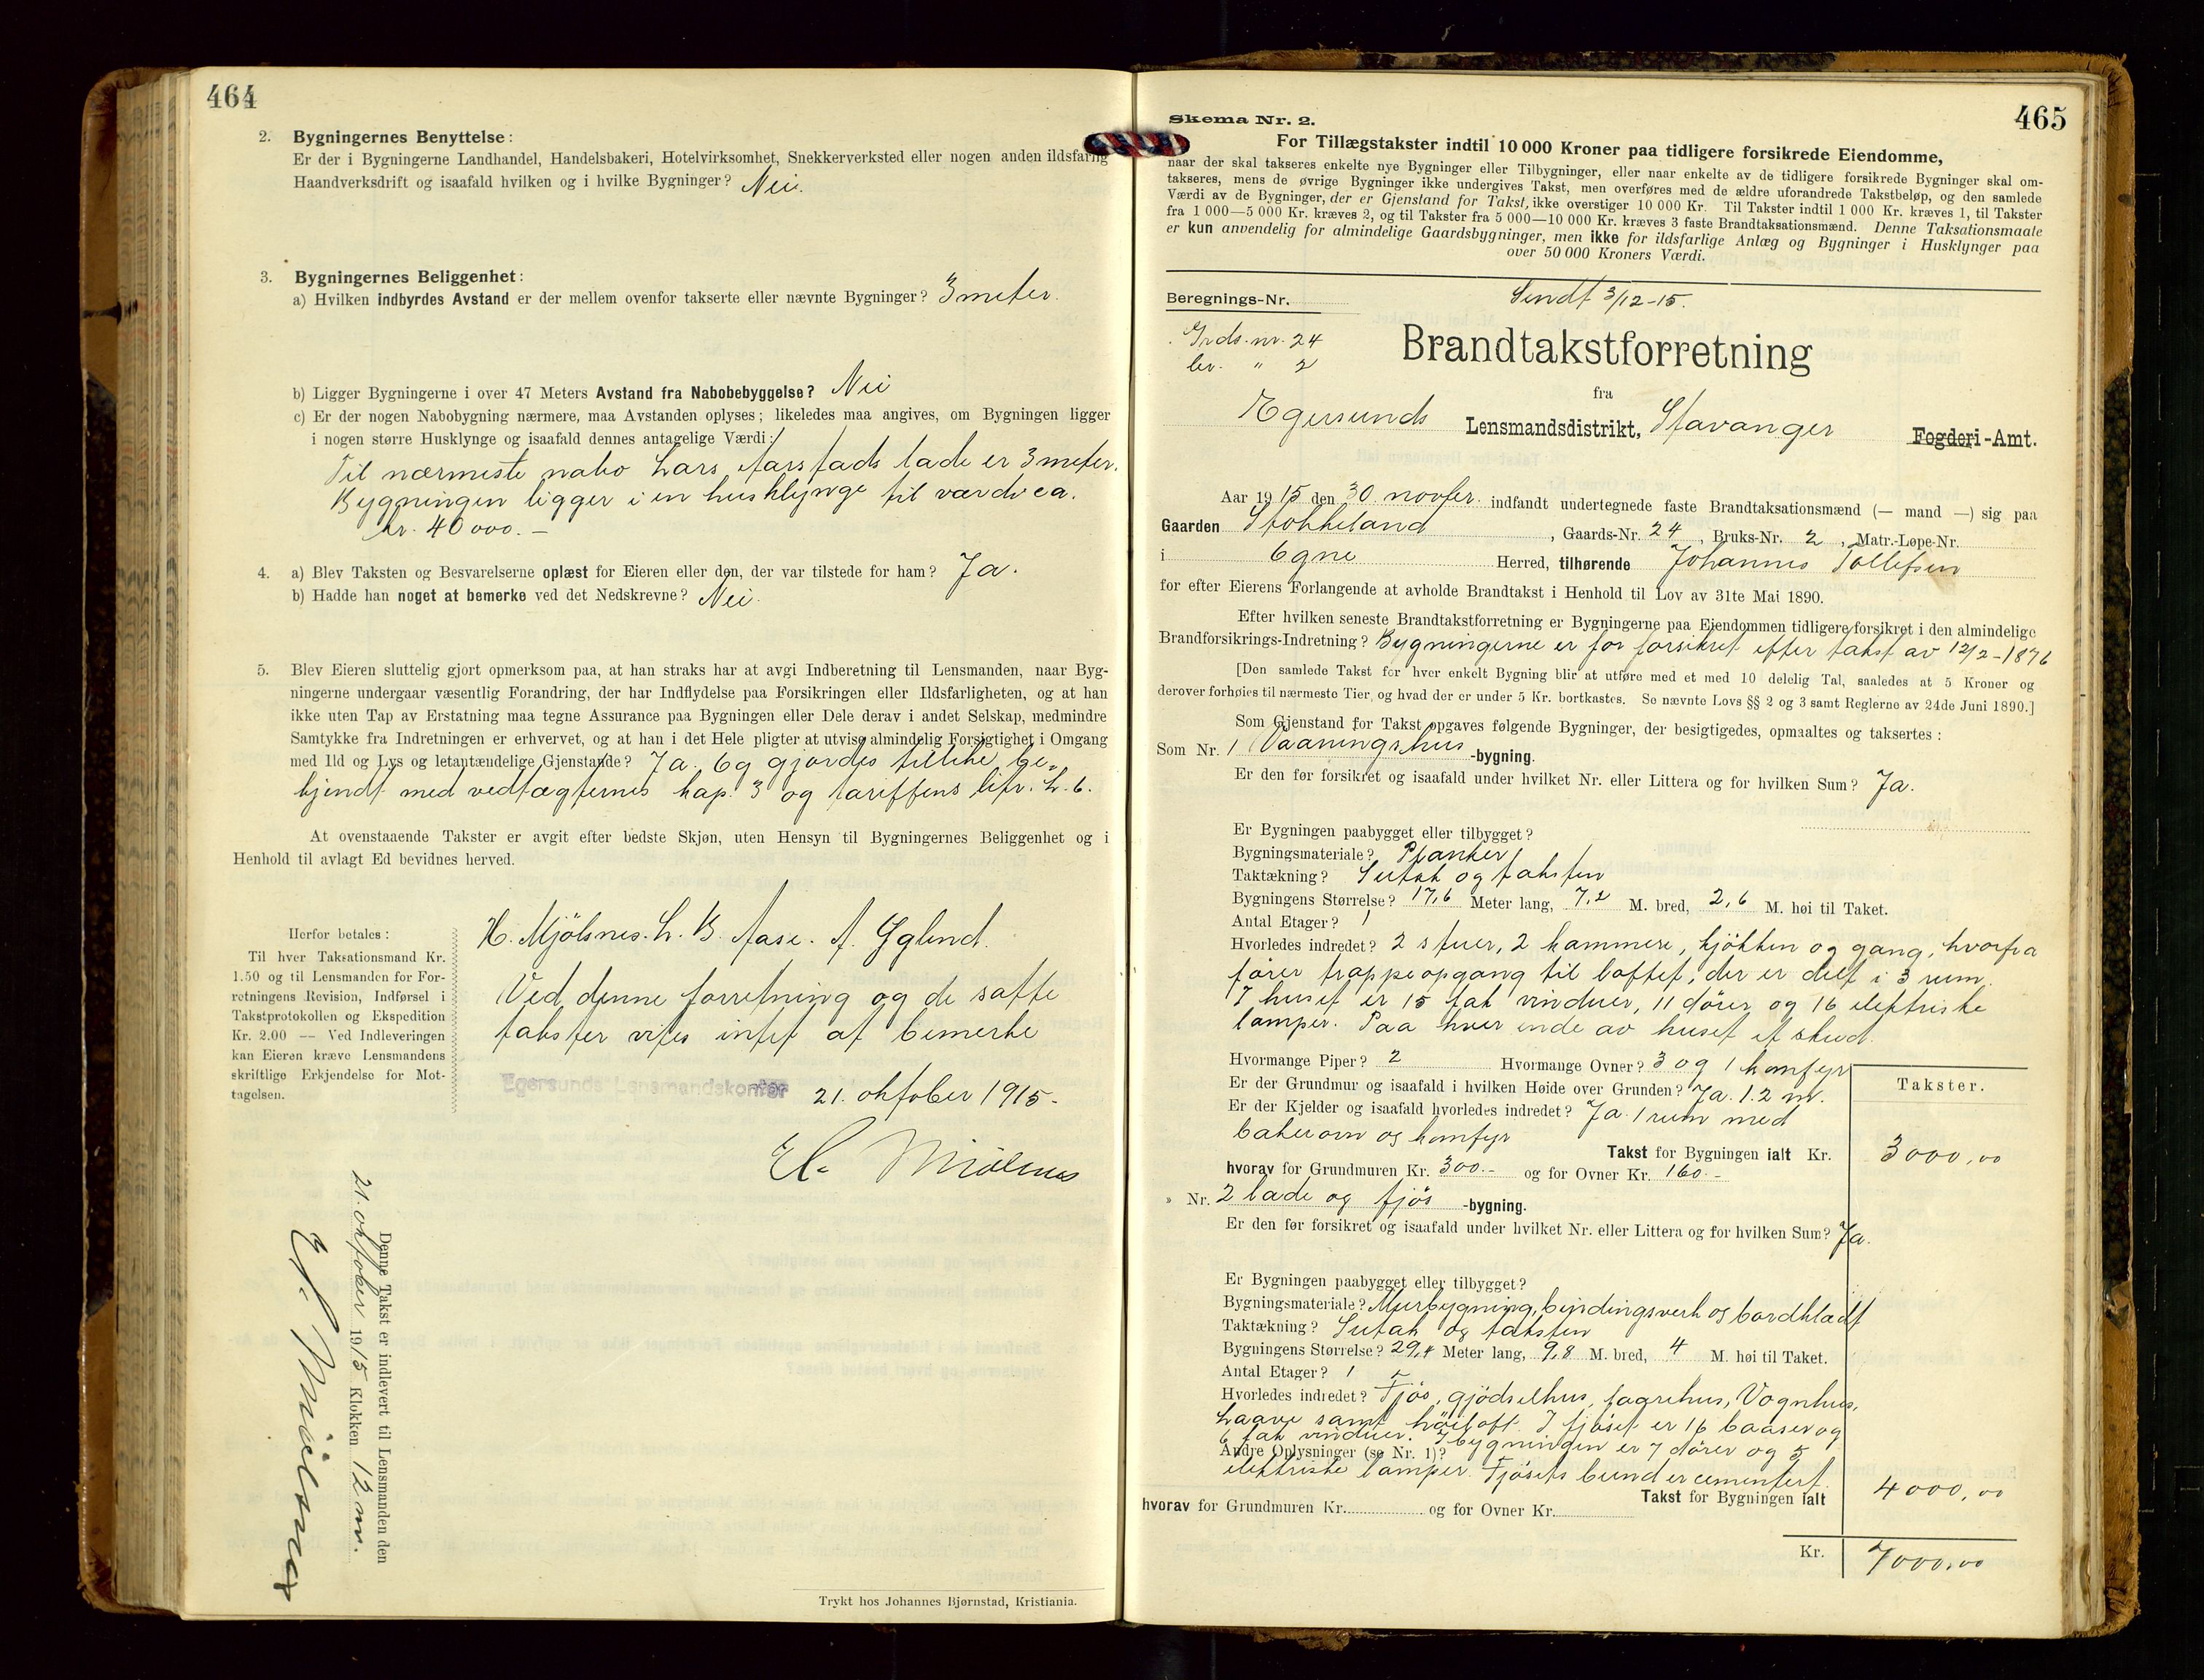 464
2. Bygningernes Benyttelse:
Er der i Bygningerne Landhandel, Handelsbakeri, Hotelvirksomhet, Snekkerverksted eller nogen anden ildsfarlig
Haandverksdrift og isaafald hvilken og i hvilke Bygninger? Nei.
3. Bygningernes Beliggenhet:
a) Hvilken indbyrdes Avstand er der mellem ovenfor takserte eller nævnte Bygninger? 3 meter.
b) Ligger Bygningerne i over 47 Meters Avstand fra Nabobebyggelse? Nei
c) Er der nogen Nabobygning nærmere, maa Avstanden oplyses; likeledes maa angives, om Bygningen ligger
i nogen større Husklynge og isaafald dennes antagelige Værdi:
Til nærmeste nabo Lars Aarstads lade er 3 meter.
Bygningen ligger i en husklynge til værdi ca.
kr. 40 000.-
4. a) Blev Taksten og Besvarelserne oplæst for Eieren eller den, der var tilstede for ham? Ja.
b) Hadde han noget at bemerke ved det Nedskrevne? Nei.
5. Blev Eieren sluttelig gjort opmerksom paa, at han straks har at avgi Indberetning til Lensmanden, naar Byg-
ningerne undergaar væsentlig Forandring, der har Indflydelse paa Forsikringen eller Ildsfarligheten, og at han
ikke uten Tap av Erstatning maa tegne Assurance paa Bygningen eller Dele derav i andet Selskap, medmindre
Samtykke fra Indretningen er erhvervet, og at han i det Hele pligter at utvise almindelig Forsigtighet i Omgang
med Ild og Lys og letantændelige Gjenstande? Ja. Og gjordes tillike be-
kjendt med vedtægternes kap. 3 og tariffens litr. L. 6.
At ovenstaaende Takster er avgit efter bedste Skjøn, uten Hensyn til Bygningernes Beliggenhet og i
Henhold til avlagt Ed bevidnes herved.
H. Mjölsnes. L. B. Aase. A. Eglend.
Herfor betales:
Til hver Taksationsmand Kr.
1.50 og til Lensmanden for For-
retningens Revision, Indførsel i
Takstprotokollen og Ekspedition
Kr. 2.00 — Ved Indleveringen
kan Eieren kræve Lensmandens
skriftlige Erkjendelse for Mot-
tagelsen.
Ved denne forretning og de satte
takster vites intet at bemerke
Egersunds Lensmandskontor 21. oktober 1915.
H. Mjölsnes
Denne Takst er indlevert til Lensmanden den
21. oktober 1915 Klokken 12 m.
H. Mjölsnes
Trykt hos Johannes Bjørnstad, Kristiania.
465
Skema Nr. 2.
For Tillægstakster indtil 10 000 Kroner paa tidligere forsikrede Eiendomme,
naar der skal takseres enkelte nye Bygninger eller Tilbygninger, eller naar enkelte av de tidligere forsikrede Bygninger skal om-
takseres, mens de øvrige Bygninger ikke undergives Takst, men overføres med de ældre uforandrede Takstbeløp, og den samlede
Værdi av de Bygninger, der er Gjenstand for Takst, ikke overstiger 10 000 Kr. Til Takster indtil 1 000 Kr. kræves 1, til Takster
fra 1 000—5 000 Kr. kræves 2, og til Takster fra 5 000—10 000 Kr. kræves 3 faste Brandtaksationsmænd. Denne Taksationsmaate
er kun anvendelig for almindelige Gaardsbygninger, men ikke for ildsfarlige Anlæg og Bygninger i Husklynger paa
over 50 000 Kroners Værdi.
Beregnings-Nr.
Sendt 3/12-15.
Grds. nr. 24
br. " 2
Brandtakstforretning
fra
Egersunds Lensmandsdistrikt, Stavanger Fogderi-Amt.
Aar 1915 den 30. novbr. indfandt undertegnede faste Brandtaksationsmænd (— mand —) sig paa
Gaarden Stokkeland, Gaards-Nr. 24, Bruks-Nr. 2, Matr.-Løpe-Nr.
i Ogne Herred, tilhørende Johannes Tollefsen
for efter Eierens Forlangende at avholde Brandtakst i Henhold til Lov av 31te Mai 1890.
Efter hvilken seneste Brandtakstforretning er Bygningerne paa Eiendommen tidligere forsikret i den almindelige
Brandforsikrings-Indretning? Bygningerne er før forsikret efter takst av 12/2-1876
[Den samlede Takst for hver enkelt Bygning blir at utføre med et med 10 delelig Tal, saaledes at 5 Kroner og
derover forhøies til nærmeste Tier, og hvad der er under 5 Kr. bortkastes. Se nævnte Lovs §§ 2 og 3 samt Reglerne av 24de Juni 1890.]
Som Gjenstand for Takst opgaves følgende Bygninger, der besigtigedes, opmaaltes og taksertes:
Som Nr. 1 Vaaningshus -bygning.
Er den før forsikret og isaafald under hvilket Nr. eller Littera og for hvilken Sum? Ja.
Er Bygningen paabygget eller tilbygget?
Bygningsmateriale? Planker
Taktækning? Sutak og taksten
Bygningens Størrelse? 17,6 Meter lang, 7,2 M. bred, 2,6 M. høi til Taket.
Antal Etager? 1
Hvorledes indredet? 2 stuer, 2 kammere, kjökken og gang, hvorfra
fører trappeopgang til loftet, der er delt i 3 rum.
I huset er 15 fak vinduer, 11 dører og 16 elektriske
lamper. Paa hver ende av huset et skud.
Hvormange Piper? 2 Hvormange Ovner? 3 og 1 komfyr
Er der Grundmur og isaafald i hvilken Høide over Grunden? Ja. 1.2 m.
Er der Kjelder og isaafald hvorledes indredet? Ja. 1 rum med
bakerovn og komfyr
Takster.
Takst for Bygningen ialt Kr. 3000,00
hvorav for Grundmuren Kr. 300.- og for Ovner Kr. 160.-
» Nr. 2 lade og fjös -bygning.
Er den før forsikret og isaafald under hvilket Nr. eller Littera og for hvilken Sum? Ja.
Er Bygningen paabygget eller tilbygget?
Bygningsmateriale? Murbygning, bindingsverk og bordklædt
Taktækning? Sutak og taksten
Bygningens Størrelse? 29,4 Meter lang, 9,8 M. bred, 4 M. høi til Taket.
Antal Etager? 1
Hvorledes indredet? Fjös, gjödselhus, faarehus, Vognhus,
Laave samt höiloft. I fjöset er 16 baaser og
6 fak vinduer. I bygningen er 7 dører og 5
Andre Oplysninger (se Nr. 1)?
elektriske lamper. Fjösets bund er cementert.
Takst for Bygningen ialt 4000,00
hvorav for Grundmuren Kr. og for Ovner Kr.
Kr. 7000,00